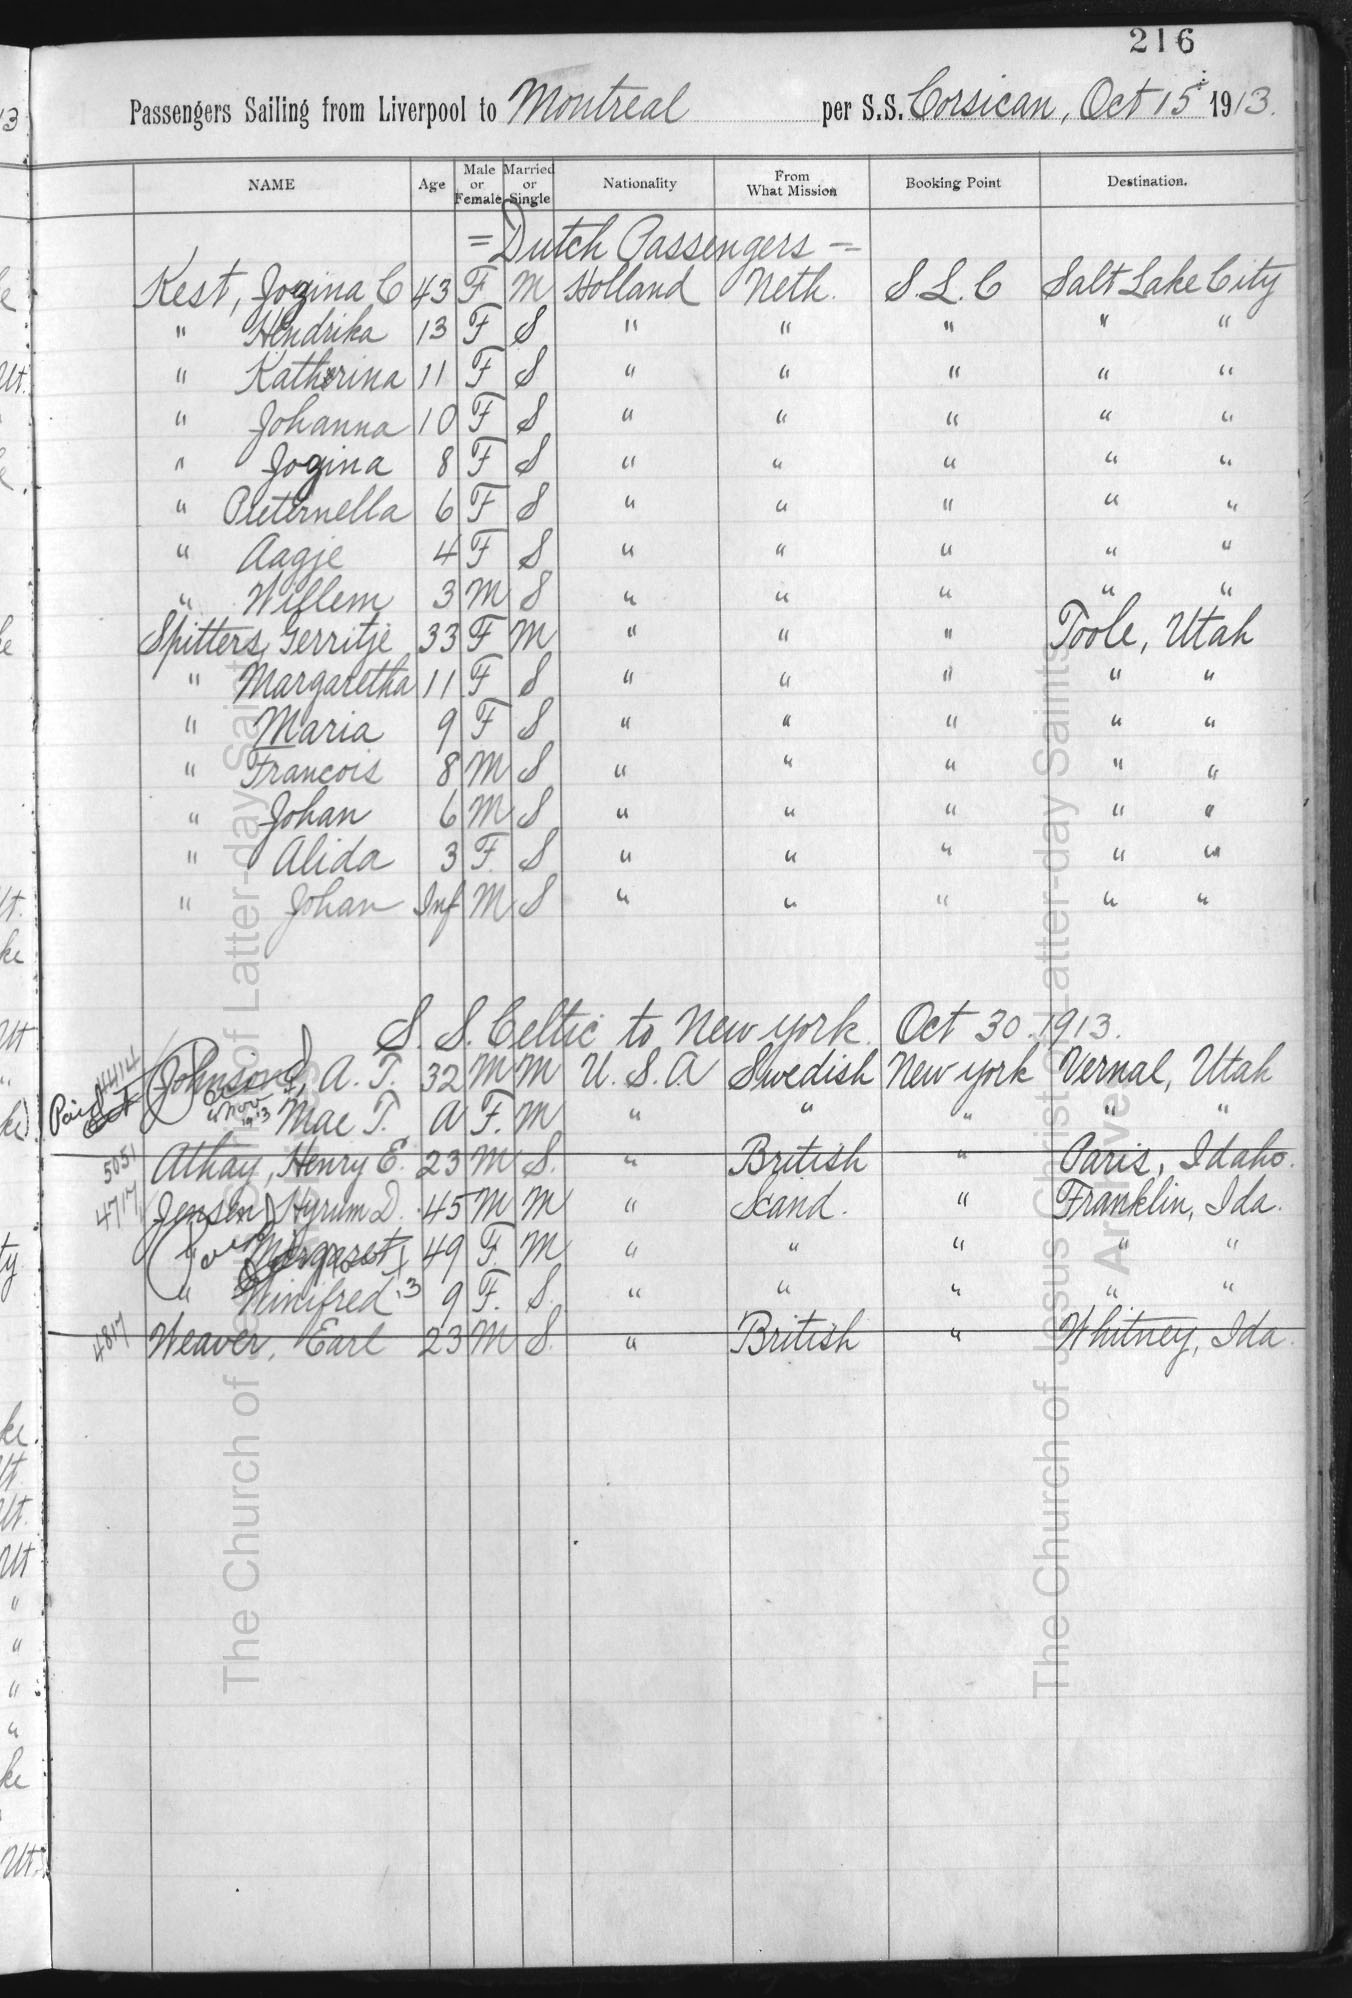 216
Passengers Sailing from Liverpool to Montreal per S.S. Corsican, Oct 15 1913.
NAME Age Male or Female Married or Single Nationality From What Mission Booking Point Destination.
= Dutch Passengers =
Kest, Jogina C 43 F M Holland Neth. S.L.C Salt Lake City
" Hendrika 13 F S " " " " "
" Katherina 11 F S " " " " "
" Johanna 10 F S " " " " "
" Jogina 8 F S " " " " "
" Pieternella 6 F S " " " " "
" Aagje 4 F S " " " " "
" Willem 3 M S " " " " "
Spitters, Gerritje 33 F M " " " Toole, Utah
" Margaretha 11 F S " " " " "
" Maria 9 F S " " " " "
" Francois 8 M S " " " " "
" Johan 6 M S " " " " "
" Alida 3 F. S " " " " "
" Johan Inf M S " " " " "
S. S. Celtic to New York Oct 30. 1913.
Johnson, A. T. 32 M M U. S. A Swedish New York Vernal, Utah
Paid " Nov 1913 Mae T. A F. M " " " " "
5051 Athay, Henry E. 23 M S. " British " Paris, Idaho.
4717 Jensen, Hyrum D. 45 M M " Scand. " Franklin, Ida.
" Margaret 49 F. M " " " " "
" Winifred 13 9 F. S. " " " " "
4817 Weaver, Earl 23 M S. " British " Whitney, Ida.
The Church of Jesus Christ of Latter-day Saints
Archives
The Church of Jesus Christ of Latter-day Saints
Archives